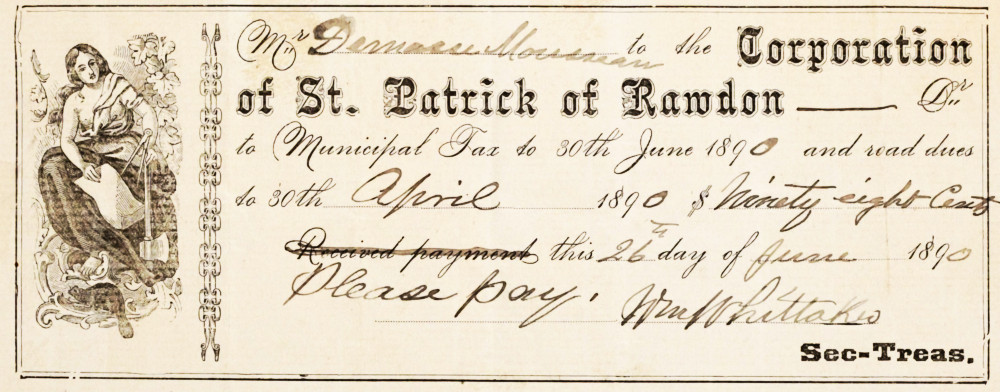 Mr. Damase Mousseau to the Corporation
of St. Patrick of Rawdon — Dr.
to Municipal Tax to 30th June 1890 and road dues
to 30th April 1890 $ Ninety eight Cents
Received payment this 26th day of June 1890
Please pay. Wm Whittaker
Sec-Treas.